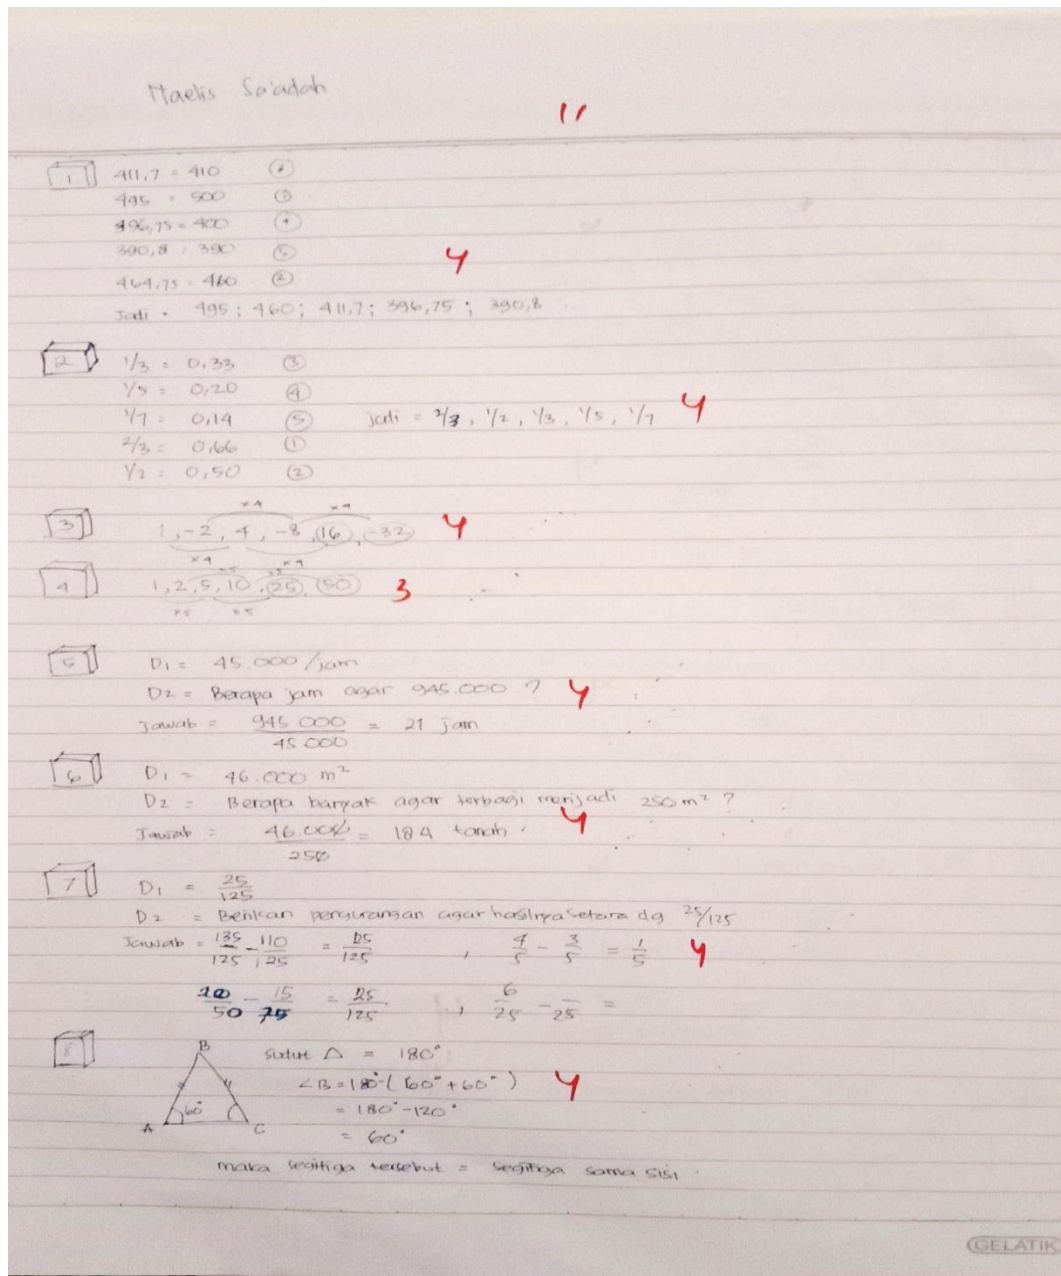 Maelis Sa'adah
11
1 411,7 = 410 ③
495 = 500 ①
396,75 = 400 ④
390,8 = 390 ⑤
464,75 = 460 ②
4
Jadi = 495 ; 460 ; 411,7 ; 396,75 ; 390,8
2 1/3 = 0,33 ③
1/5 = 0,20 ④
1/7 = 0,14 ⑤ jadi = 2/3, 1/2, 1/3, 1/5, 1/7 4
2/3 = 0,66 ①
1/2 = 0,50 ②
×4 ×4
3 1, -2, 4, -8, 16, -32 4
×4 ×4
×5 ×5
4 1, 2, 5, 10, 25, 50 3
×5 ×5
5 D1 = 45.000/jam
D2 = Berapa jam agar 945.000 ? 4
Jawab = 945 000 / 45 000 = 21 jam
6 D1 = 46.000 m²
D2 = Berapa banyak agar terbagi menjadi 250 m² ?
Jawab = 46.000 / 250 = 184 tanah. 4
7 D1 = 25/125
D2 = Berikan pengurangan agar hasilnya setara dg 25/125
Jawab = 135/125 - 110/125 = 25/125 , 4/5 - 3/5 = 1/5 4
20/50 - 15/75 = 25/125 , 6/25 - /25 =
8 B sudut Δ = 180°
∠B = 180° - (60° + 60°) 4
= 180° - 120°
60°
A C = 60°
maka segitiga tersebut = segitiga sama sisi.
GELATIK